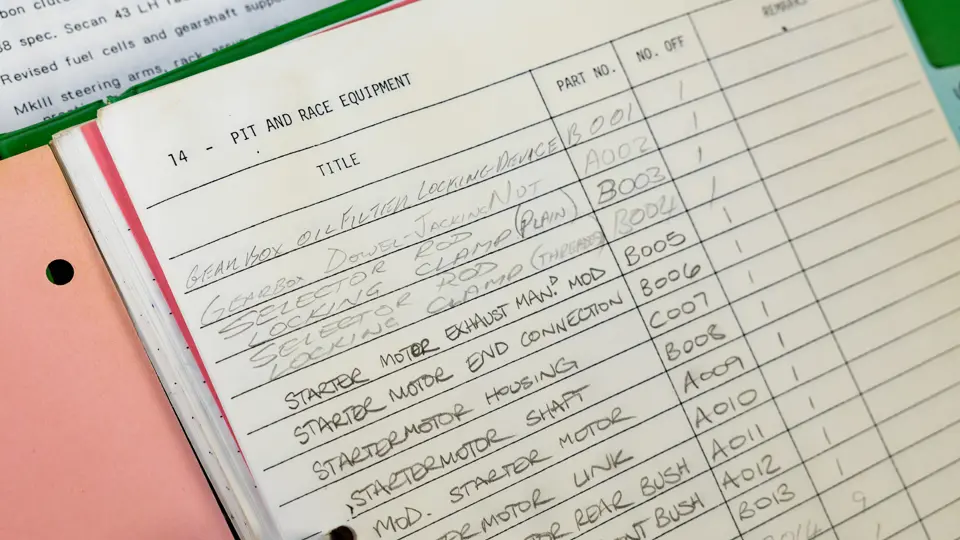 bon clut
38 spec. Secan 43 LH
Revised fuel cells and gearshift suppor
MkIII steering arms, rack
14 - PIT AND RACE EQUIPMENT
TITLE PART NO. NO. OFF REMARKS
GEARBOX OIL FILTER LOCKING DEVICE B001 1
GEARBOX DOWEL-JACKING NUT A002 1
SELECTOR ROD
LOCKING CLAMP (PLAIN) B003 1
SELECTOR ROD
LOCKING CLAMP (THREADED) B004 1
STARTER MOTOR EXHAUST MAN.D MOD B005 1
STARTER MOTOR END CONNECTION B006 1
STARTERMOTOR HOUSING C007 1
STARTERMOTOR SHAFT B008 1
MOD. STARTER MOTOR A009 1
TER MOTOR LINK A010 1
OR REAR BUSH A011 1
NT BUSH A012 1
B013 9
014 1